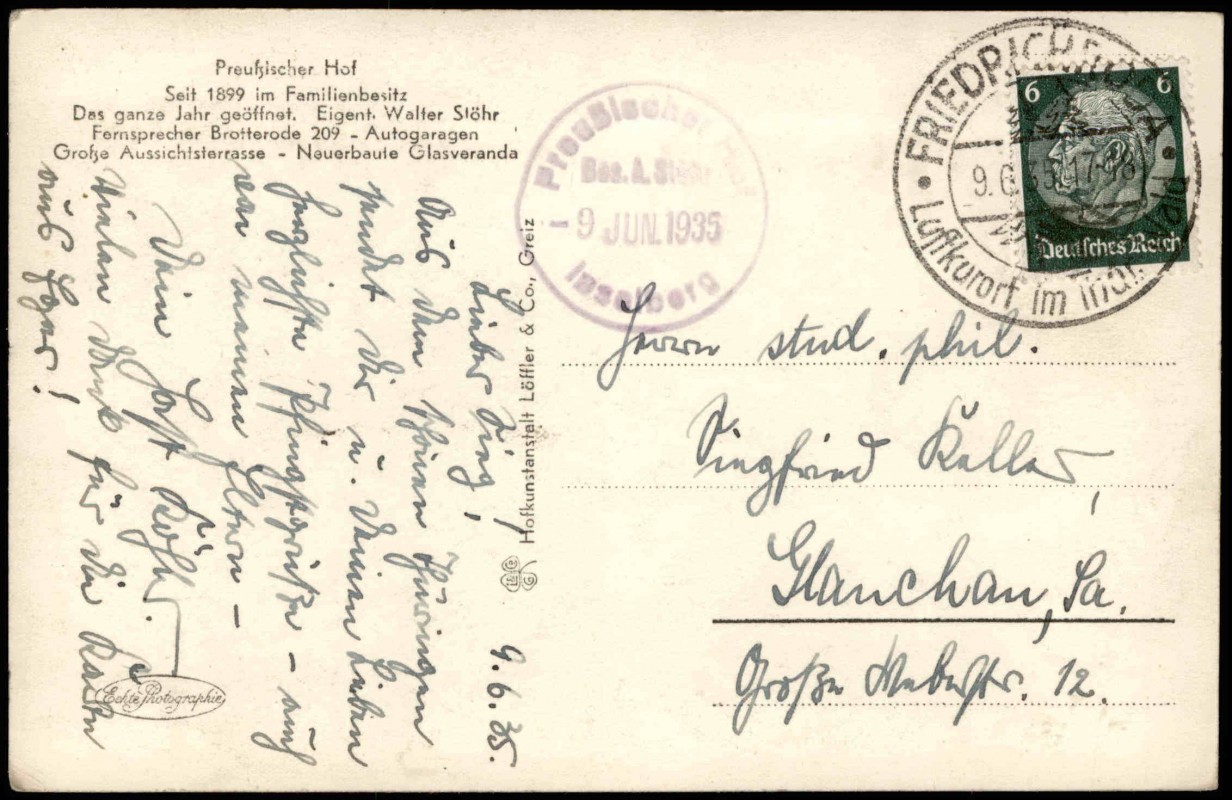 Preußischer Hof
Seit 1899 im Familienbesitz
Das ganze Jahr geöffnet. Eigent. Walter Stöhr
Fernsprecher Brotterode 209 - Autogaragen
Große Aussichtsterrasse - Neuerbaute Glasveranda
9.6.35.
Lieber Sieg!
Aus dem schönen Thüringen
sendet Dir u. Deinen Lieben
herzlichste Pfingstgrüße - auch
von meinen Eltern -
Dein Horst Köhler.
Vielen Dank für die Karten
aus Eger!
Echte Photographie
Hofkunstanstalt Löffler & Co., Greiz
Preußischer Hof
Bes. A. Stöhr
- 9 JUN. 1935
Inselberg
FRIEDRICHRODA
9.6.35.17-18
Luftkurort im Thür.
6 6
Deutsches Reich
Herrn stud. phil.
Siegfried Keller,
Glauchau, Sa.
Große Weberstr. 12.